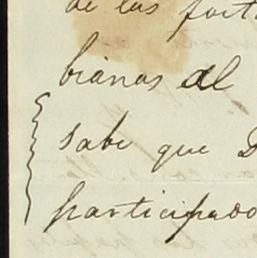 de las fort
bianas al
sabe que D
participado